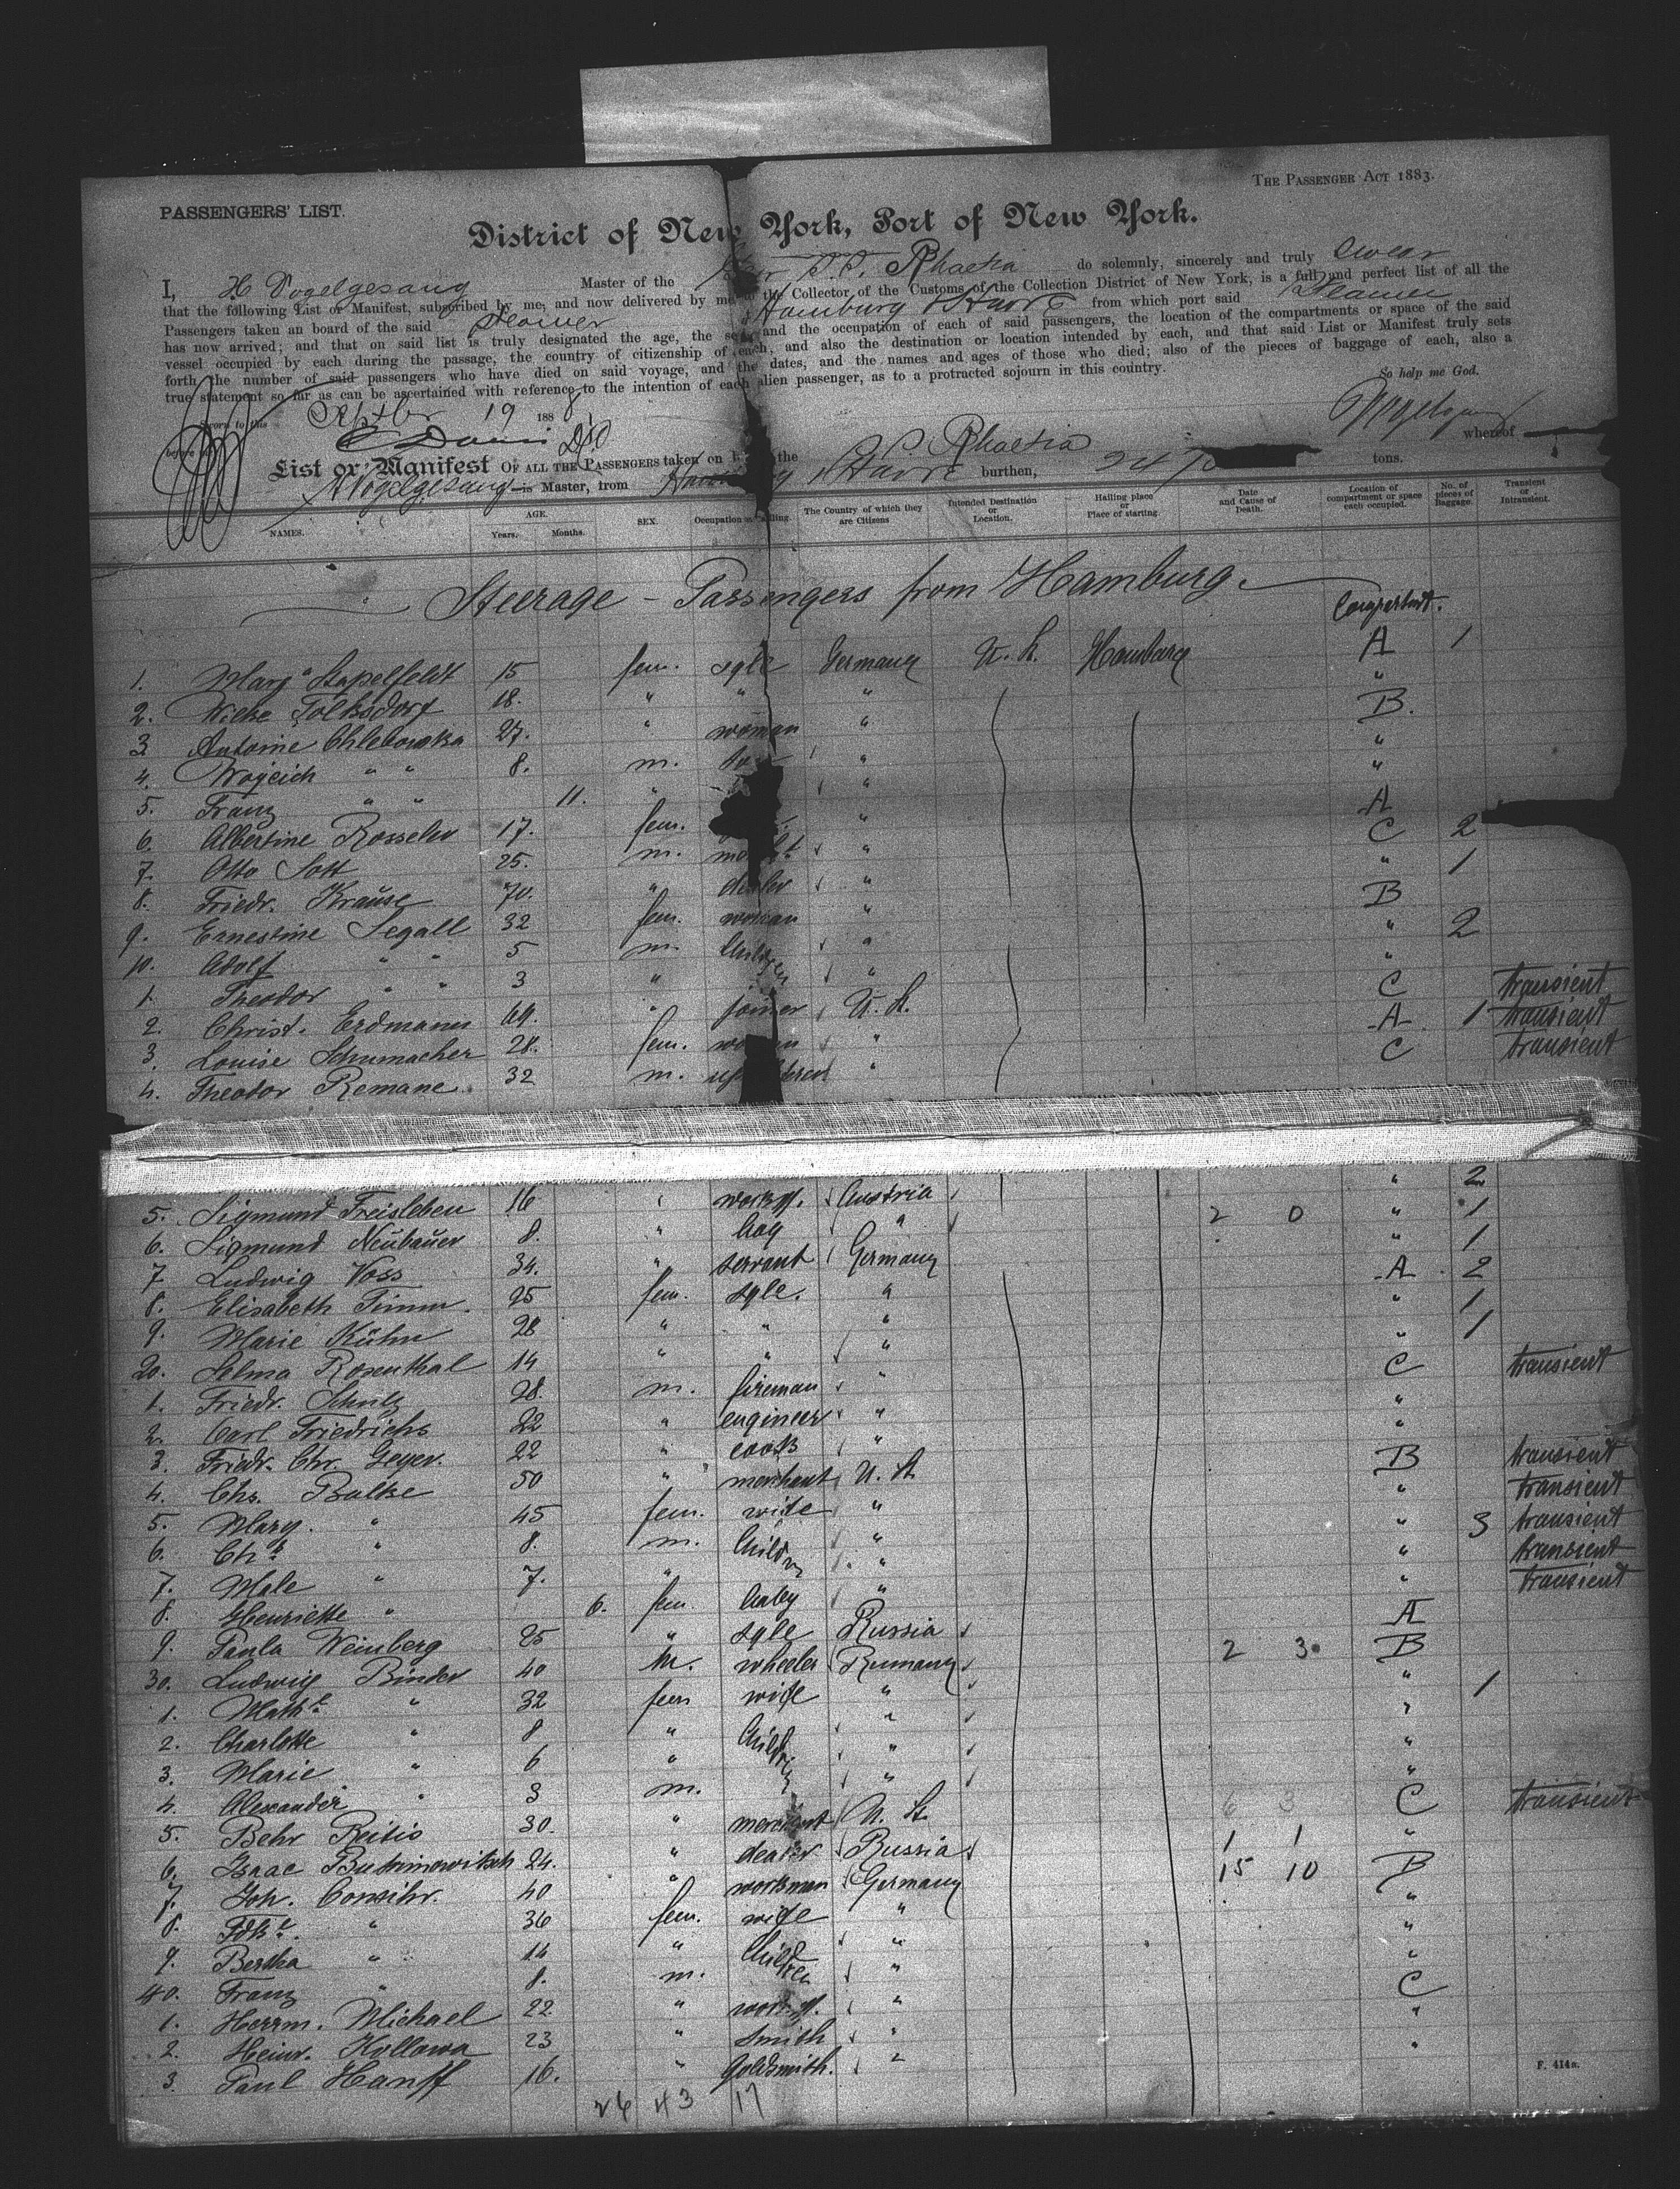 PASSENGERS' LIST.
THE PASSENGER ACT 1883.
District of New York, Port of New York.
I, H Vogelgesang Master of the S.S. Rhaetia do solemnly, sincerely and truly swear
that the following List or Manifest, subscribed by me, and now delivered by me to the Collector of the Customs of the Collection District of New York, is a full and perfect list of all the
Passengers taken on board of the said Steamer Hamburg & Havre from which port said Steamer
has now arrived; and that on said list is truly designated the age, the sex and the occupation of each of said passengers, the location of the compartments or space of the said
vessel occupied by each during the passage, the country of citizenship of each, and also the destination or location intended by each, and that said List or Manifest truly sets
forth the number of said passengers who have died on said voyage, and the dates, and the names and ages of those who died; also of the pieces of baggage of each, also a
true statement so far as can be ascertained with reference to the intention of each alien passenger, as to a protracted sojourn in this country.
So help me God.
Sworn to this Septbr 19 1888
Vogelgesang
before me
List or Manifest OF ALL THE PASSENGERS taken on the S.S. Rhaetia whereof
H Vogelgesang is Master, from Hamburg & Havre burthen, tons.
NAMES. AGE. Years. Months. SEX. Occupation or Calling. The Country of which they are Citizens Intended Destination or Location. Hailing place or Place of starting. Date and Cause of Death. Location of compartment or space each occupied. No. of pieces of Baggage. Transient or Intransient.
Steerage - Passengers from Hamburg.
Compartmt.
1. Marg. Stapelfeldt 15 fem. sgle Germany U. St. Hamburg A 1
2. Wieke Tolksdorf 18. " " " "
3. Antoine Chlebowska 27. " woman " B.
4. Wojcich " " 8. m. " "
5. Franz " " 11. " " "
6. Albertine Rosseler 17. fem. " A
7. Otto Sott 25. m. " C 2
8. Friedr. Krause 70. " dealer " " 1
9. Ernestine Segall 32 fem. woman " B
10. Adolf " " 5 m. Children " " 2
1. Theodor " " 3 " " "
2. Christ. Erdmann 69. " joiner U. St. C transient
3. Louise Schumacher 28. fem. woman " A 1 transient
4. Theodor Remane 32 m. " C transient
5. Sigmund Freisleben 16 workm. Austria " 2
6. Sigmund Neubauer 8. " boy " 2 0 " 1
7. Ludwig Voss 34. " servant Germany " 1
8. Elisabeth Timm. 25 fem. sgle. " A 2
9. Marie Kühn 28 " " " " 1
20. Selma Rosenthal 14 " " " " 1
1. Friedr. Schulz 28. m. fireman " C transient
2. Carl Friedrichs 22 " engineer " "
3. Friedr. Chr. Geyer. 22 " cook " "
4. Chs. Balke 50 " merchant U. St. B transient
5. Mary. " 45 fem. wife " " transient
6. Chs " 8. m. Children " " 3 transient
7. Male " 7. " " " transient
8. Henriette " 6. fem baby " " transient
9. Paula Weinberg 25 " sgle Russia A
30. Ludwig Binder 40 m. wheeler Rumany 2 3 B
1. Mathe " 32 fem wife " " 1
2. Charlotte " 8 " Children " "
3. Marie " 6 " " "
4. Alexander " 3 m. " "
5. Behr Reitis 30. " merchant U. St. 6 3 C transient
6. Isaac Butrimowitsch 24. " dealer Russia 1 1 "
7. Joh. Consihr. 40 " workman Germany 15 10 B
8. " 36 fem. wife " "
9. Bertha " 14 " Children " "
40. Franz " 8. m. " "
1. Herrm. Michael 22. " workm. " C
2. Heinr. Kollowa 23 " Smith " "
3. Paul Hanff 16. " Goldsmith. " "
26 43 17
F. 414a.